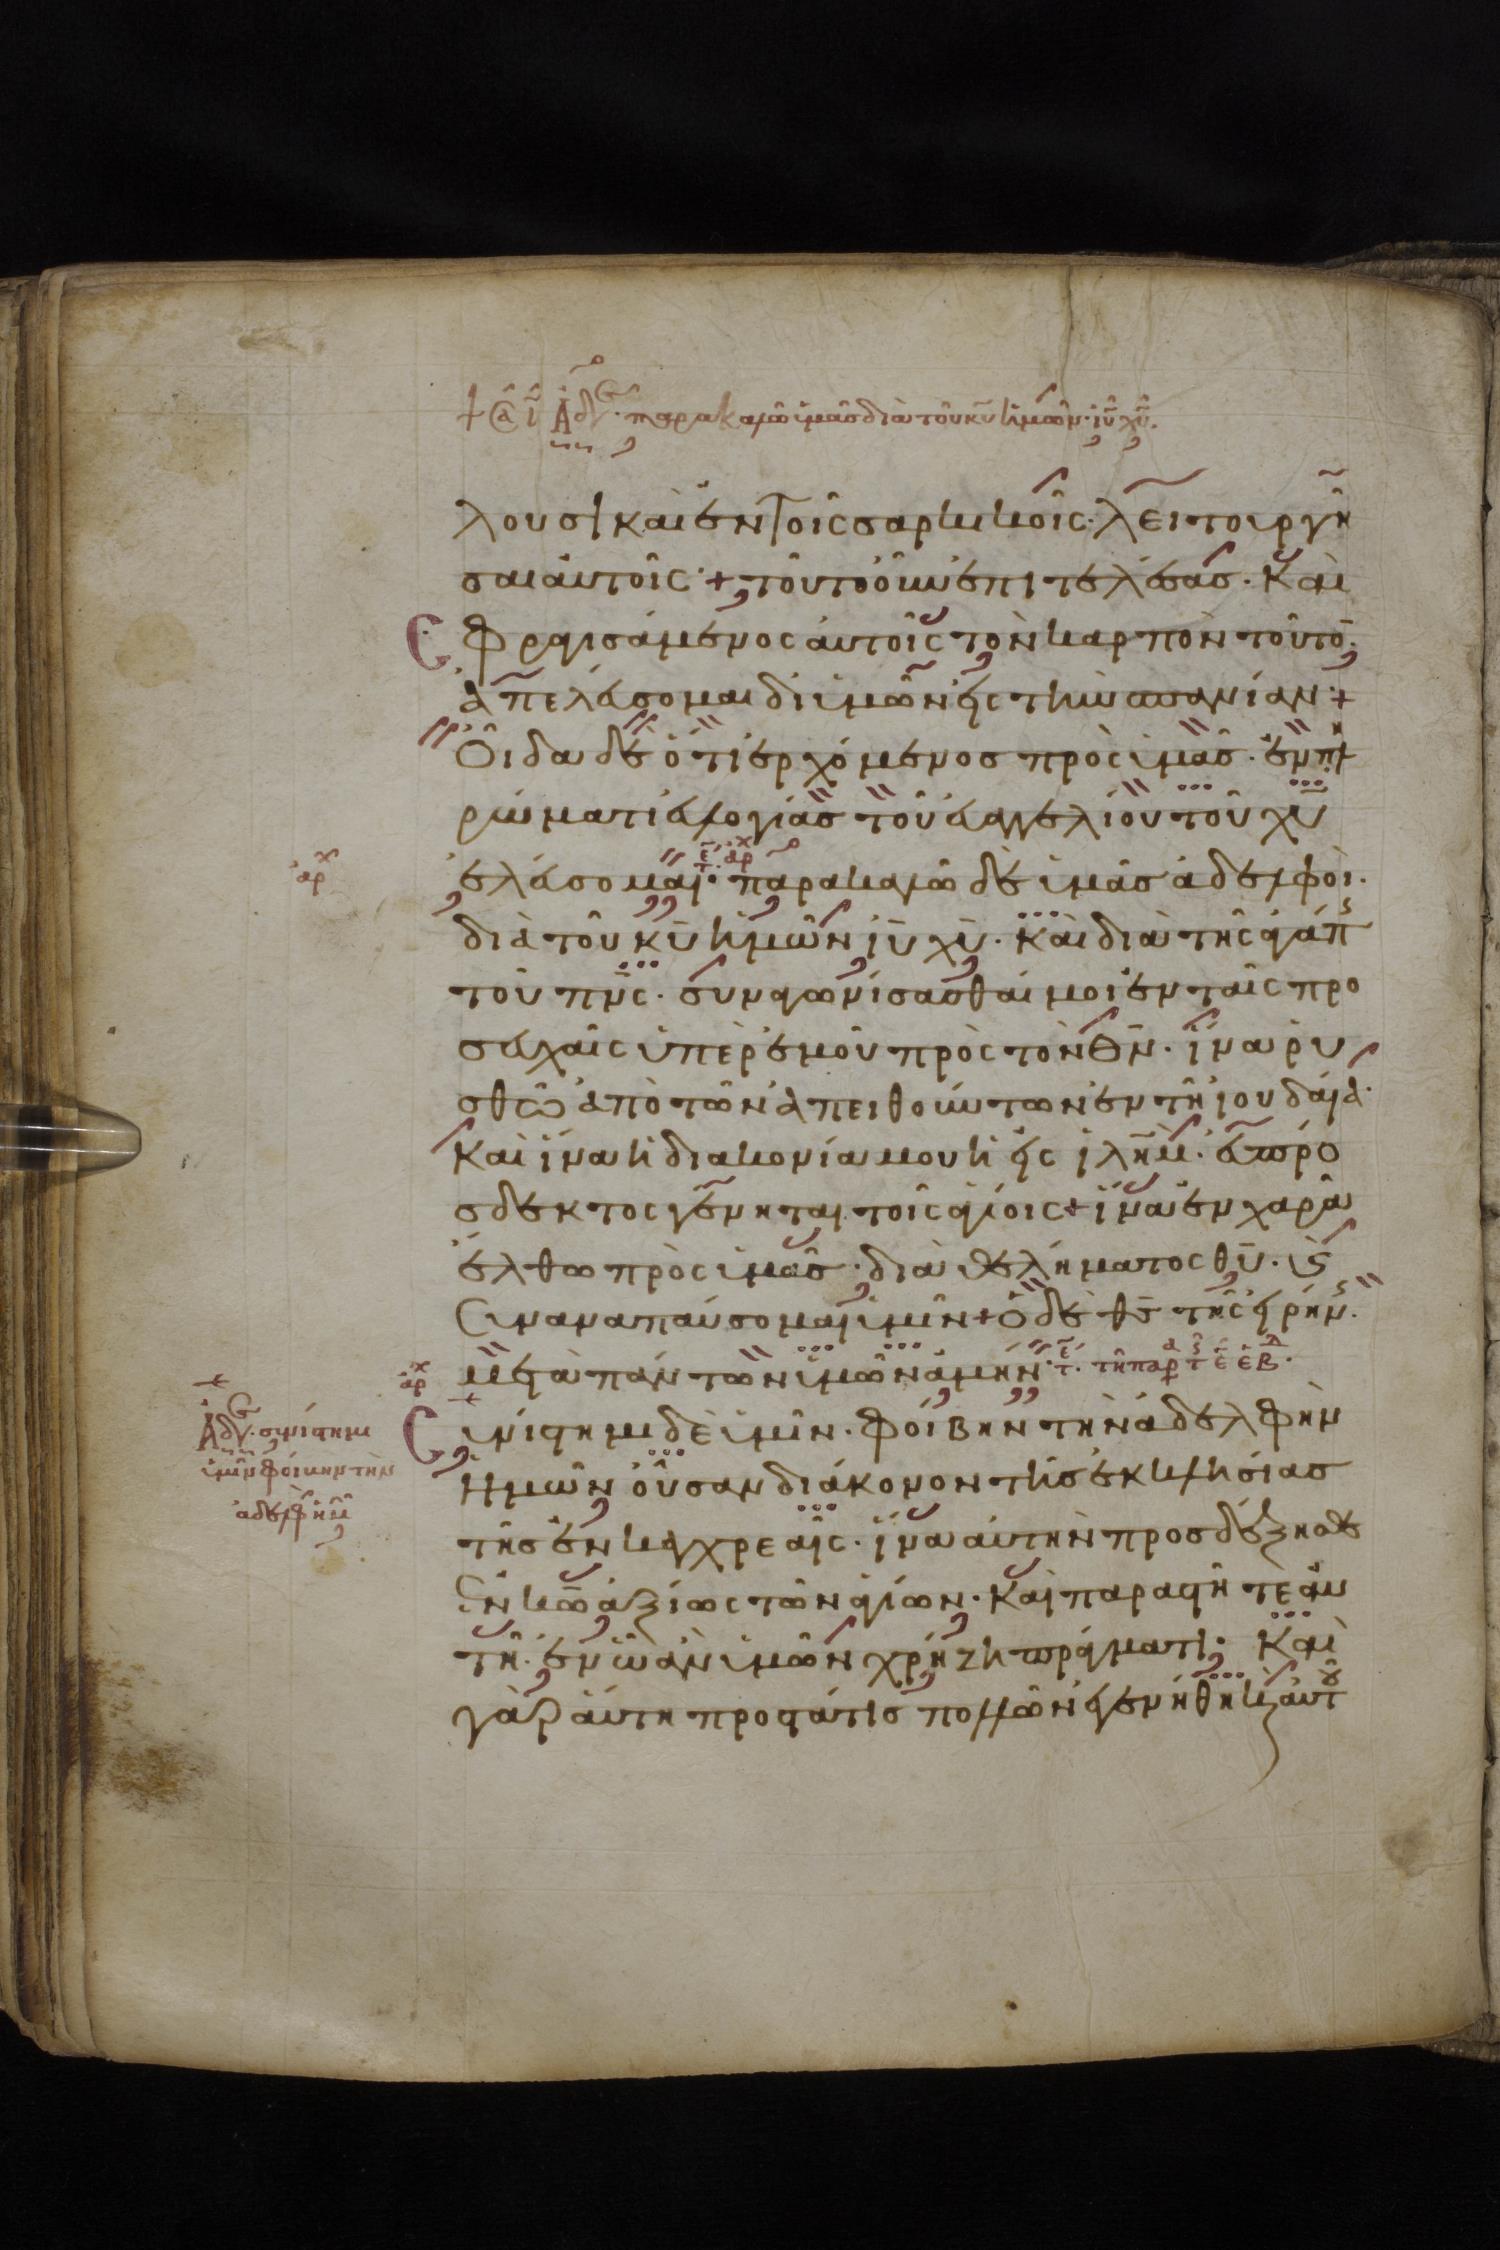 ἀδελφοί· παρακαλῶ ἡμᾶς διὰ τοῦ κ̅υ̅ ἡμῶν ι̅υ̅ χ̅υ̅.
λουσι καὶ ἐν τοῖς σαρκικοῖς· λειτουργῆ
σαι αὐτοῖς + τοῦτο οὖν ἐπιτελέσας· καὶ
σφραγισάμενος αὐτοῖς τὸν καρπὸν τοῦτο·
ἀπελεύσομαι δι ὑμῶν εἰς τὴν σπανίαν +
Οἶδα δὲ ὅτι ἐρχόμενος πρὸς ὑμᾶς· ἐν πλη
ρώματι εὐλογίας τοῦ εὐαγγελίου τοῦ χ̅υ̅
ἐλεύσομαι· παρακαλῶ δὲ ὑμᾶς ἀδελφοί·
διὰ τοῦ κ̅υ̅ ἡμῶν ι̅υ̅ χ̅υ̅· καὶ διὰ τῆς ἀγάπ
τοῦ π̅ν̅ς̅· συναγωνίσασθαί μοι ἐν ταῖς προ
σευχαῖς ὑπὲρ ἐμοῦ πρὸς τὸν θ̅ν̅· ἵνα ῥυ
σθῶ ἀπὸ τῶν ἀπειθούντων ἐν τῇ ἰουδαία·
καὶ ἵνα ἡ διακονία μου ἡ εἰς ι̅λ̅η̅μ̅· εὐπρό
σδεκτος γένηται τοῖς ἁγίοις + ἵνα ἐν χαρᾶ
ἔλθω πρὸς ὑμᾶς· διὰ θελήματος θ̅υ̅· κ̀
συναναπαύσομαι ὑμῖν + ὁ δὲ θ̅ς̅ τῆς εἰρήν·
μετὰ πάντων ὑμῶν ἀμήν·
Συνίστημι δὲ ὑμῖν· φοίβην τὴν ἀδελφὴν
ἀδελφοί· συνίστημι
ὑμῖν φοίκην τὴν
ἀδελφ ἡμ
ἡμῶν οὖσαν διάκονον τῆς ἐκκλησίας
τῆς ἐν κεγχρεαῖς· ἵνα αὐτὴν προσδέξησθε
ἐν κ̅ω̅ ἀξίως τῶν ἁγίων· καὶ παραστῆτε αὐ
τῆ· ἐν ᾧ ἂν ὑμῶν χρήζη πράγματι· καὶ
γὰρ αὐτη προστάτις πολλῶν ἐγενήθη κ̀ αὐτοῦ